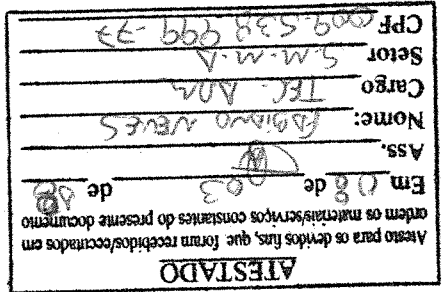 ATESTADO
Atesto para os devidos fins, que foram recebidos/executados em
ordem os materiais/serviços constantes do presente documento
Em 08 de 03 de
Ass.
Nome: FABIANO NEVES
Cargo TEC. ADM
Setor S.M.M.A
CPF 009.538.999-77